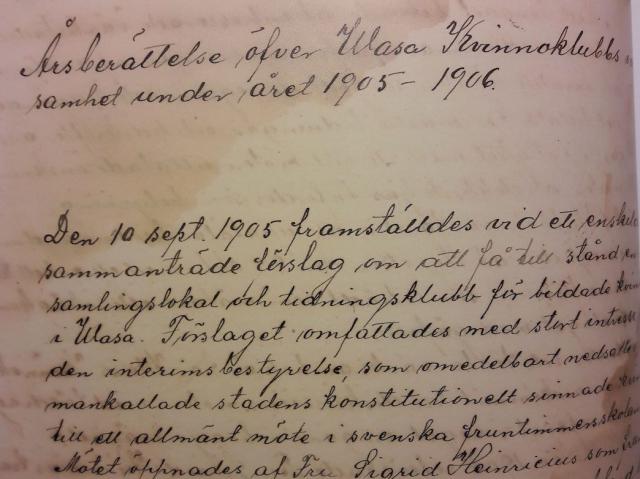 Årsberättelse öfver Wasa Kvinnoklubbs
samhet under året 1905–1906.
Den 10 sept. 1905 framställdes vid ett enskil
sammanträde förslag om att få till stånd en
samlingslokal och tidningsklubb för bildade kvin
i Wasa. Förslaget omfattades med stort intres
den interimsbestyrelse, som omedelbart nedsatte
mankallade stadens konstitutionelt sinnade
till ett allmänt möte i svenska fruntimmersskolan
Mötet öppnades af Fru Sigrid Heinricius som